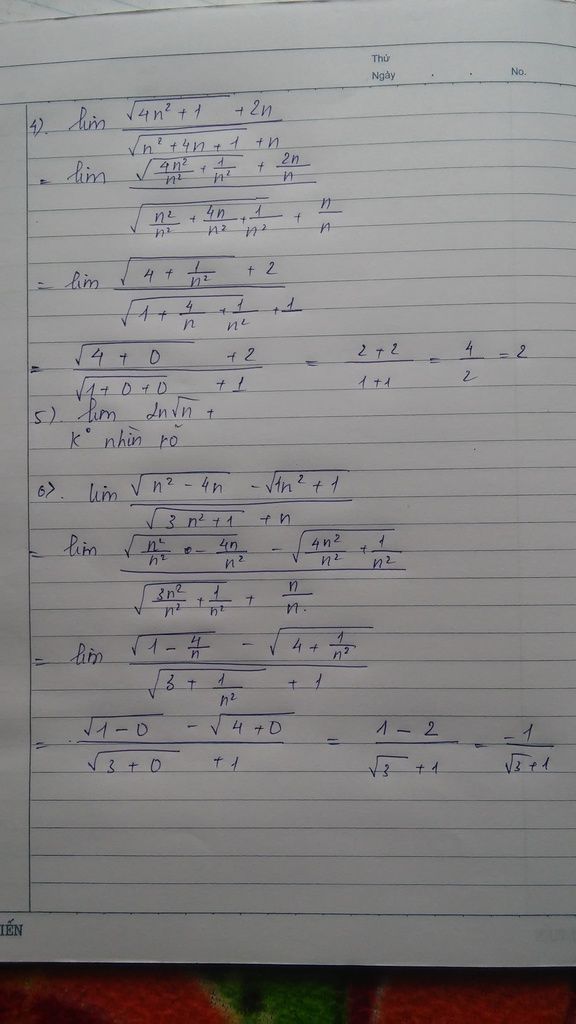 Thứ
Ngày . . No.
4). lim (√(4n² + 1) + 2n) / (√(n² + 4n + 1) + n)
= lim (√(4n²/n² + 1/n²) + 2n/n) / (√(n²/n² + 4n/n² + 1/n²) + n/n)
= lim (√(4 + 1/n²) + 2) / (√(1 + 4/n + 1/n²) + 1)
= (√(4 + 0) + 2) / (√(1 + 0 + 0) + 1) = (2 + 2) / (1 + 1) = 4/2 = 2
5). lim 2n√n +
K° nhìn rõ
6). lim (√(n² - 4n) - √(1n² + 1)) / (√(3n² + 1) + n)
= lim (√(n²/n² - 4n/n²) - √(4n²/n² + 1/n²)) / (√(3n²/n² + 1/n²) + n/n.)
= lim (√(1 - 4/n) - √(4 + 1/n²)) / (√(3 + 1/n²) + 1)
= (√(1 - 0) - √(4 + 0)) / (√(3 + 0) + 1) = (1 - 2) / (√3 + 1) = -1 / (√3 + 1)
IẾN